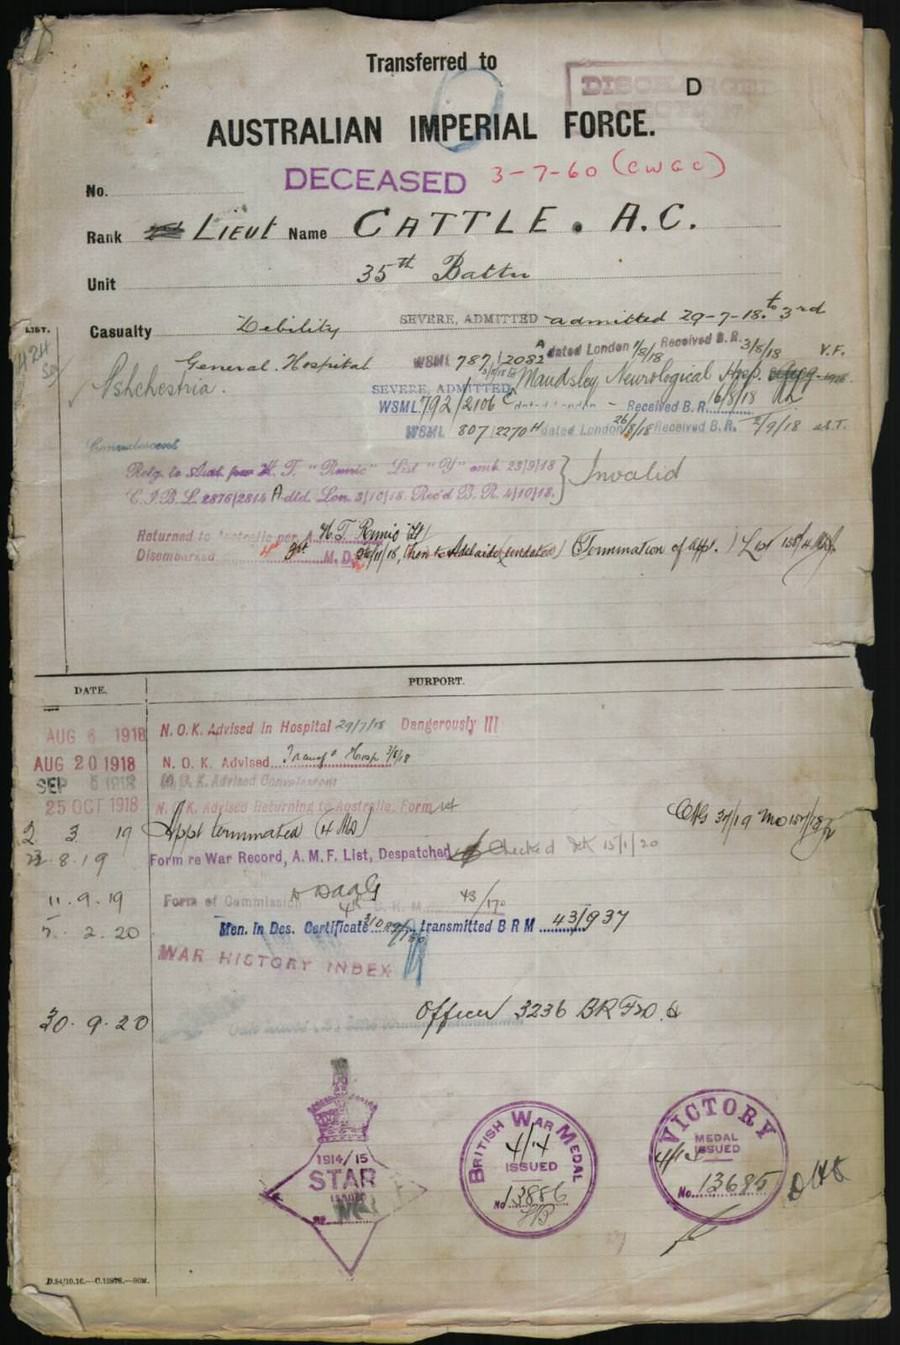 Transferred to
DISCHARGED D
AUSTRALIAN IMPERIAL FORCE.
DECEASED 3-7-60 (CWGC)
No.
Rank Lieut Name CATTLE. A.C.
Unit 35th Battn
LIST.
Casualty Debility SEVERE, ADMITTED admitted 29-7-18. to 3rd
General Hospital WSML 787/2082 A dated London 1/8/18 Received B.R. 3/8/18 V.F.
SEVERE, ADMITTED Maudsley Neurological Hosp.
WSML 792/2106 C dated London - Received B.R. 16/8/18
WSML 807/2270 H dated London 26/8/18 Received B.R. 2/9/18
Convalescent
Retg. to Aust. per H.T. "Runic" List "Y" emb. 23/9/18 } Invalid
C.I.B.L. 2876/2814 A dtd. Lon. 3/10/18. Rec'd B.R. 4/10/18.
Returned to Australia per H.T. Runic
Disembarked M.D. 26/11/18, then to Adelaide (Termination of appt.) List
DATE. PURPORT.
AUG 6 1918 N.O.K. Advised in Hospital 29/7/18 Dangerously Ill
AUG 20 1918 N.O.K. Advised Transf. Hosp
SEP 5 1918 N.O.K. Advised Convalescent
25 OCT 1918 N.O.K. Advised Returning to Australia. Form
2 3 19 Appt terminated (4 MD)
8.19 Form re War Record, A.M.F. List, Despatched Checked 15/1/20
11.9.19 Form of Commission 43/170
2.20 Men. In Des. Certificate transmitted B R M 43/937
WAR HISTORY INDEX
30.9.20 Officer 3236 BR
1914/15
STAR
ISSUED
No.
BRITISH WAR MEDAL
4/14
ISSUED
No 13886
VICTORY
MEDAL
ISSUED
No. 13685
D.84/10.16.—C.12876.—90M.